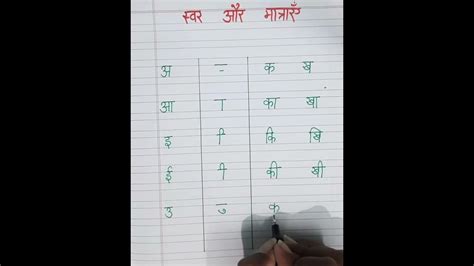 स्वर और मात्राएँ
अ - क ख
आ ा का खां
इ ि कि खि
ई ी की खी
उ ु क